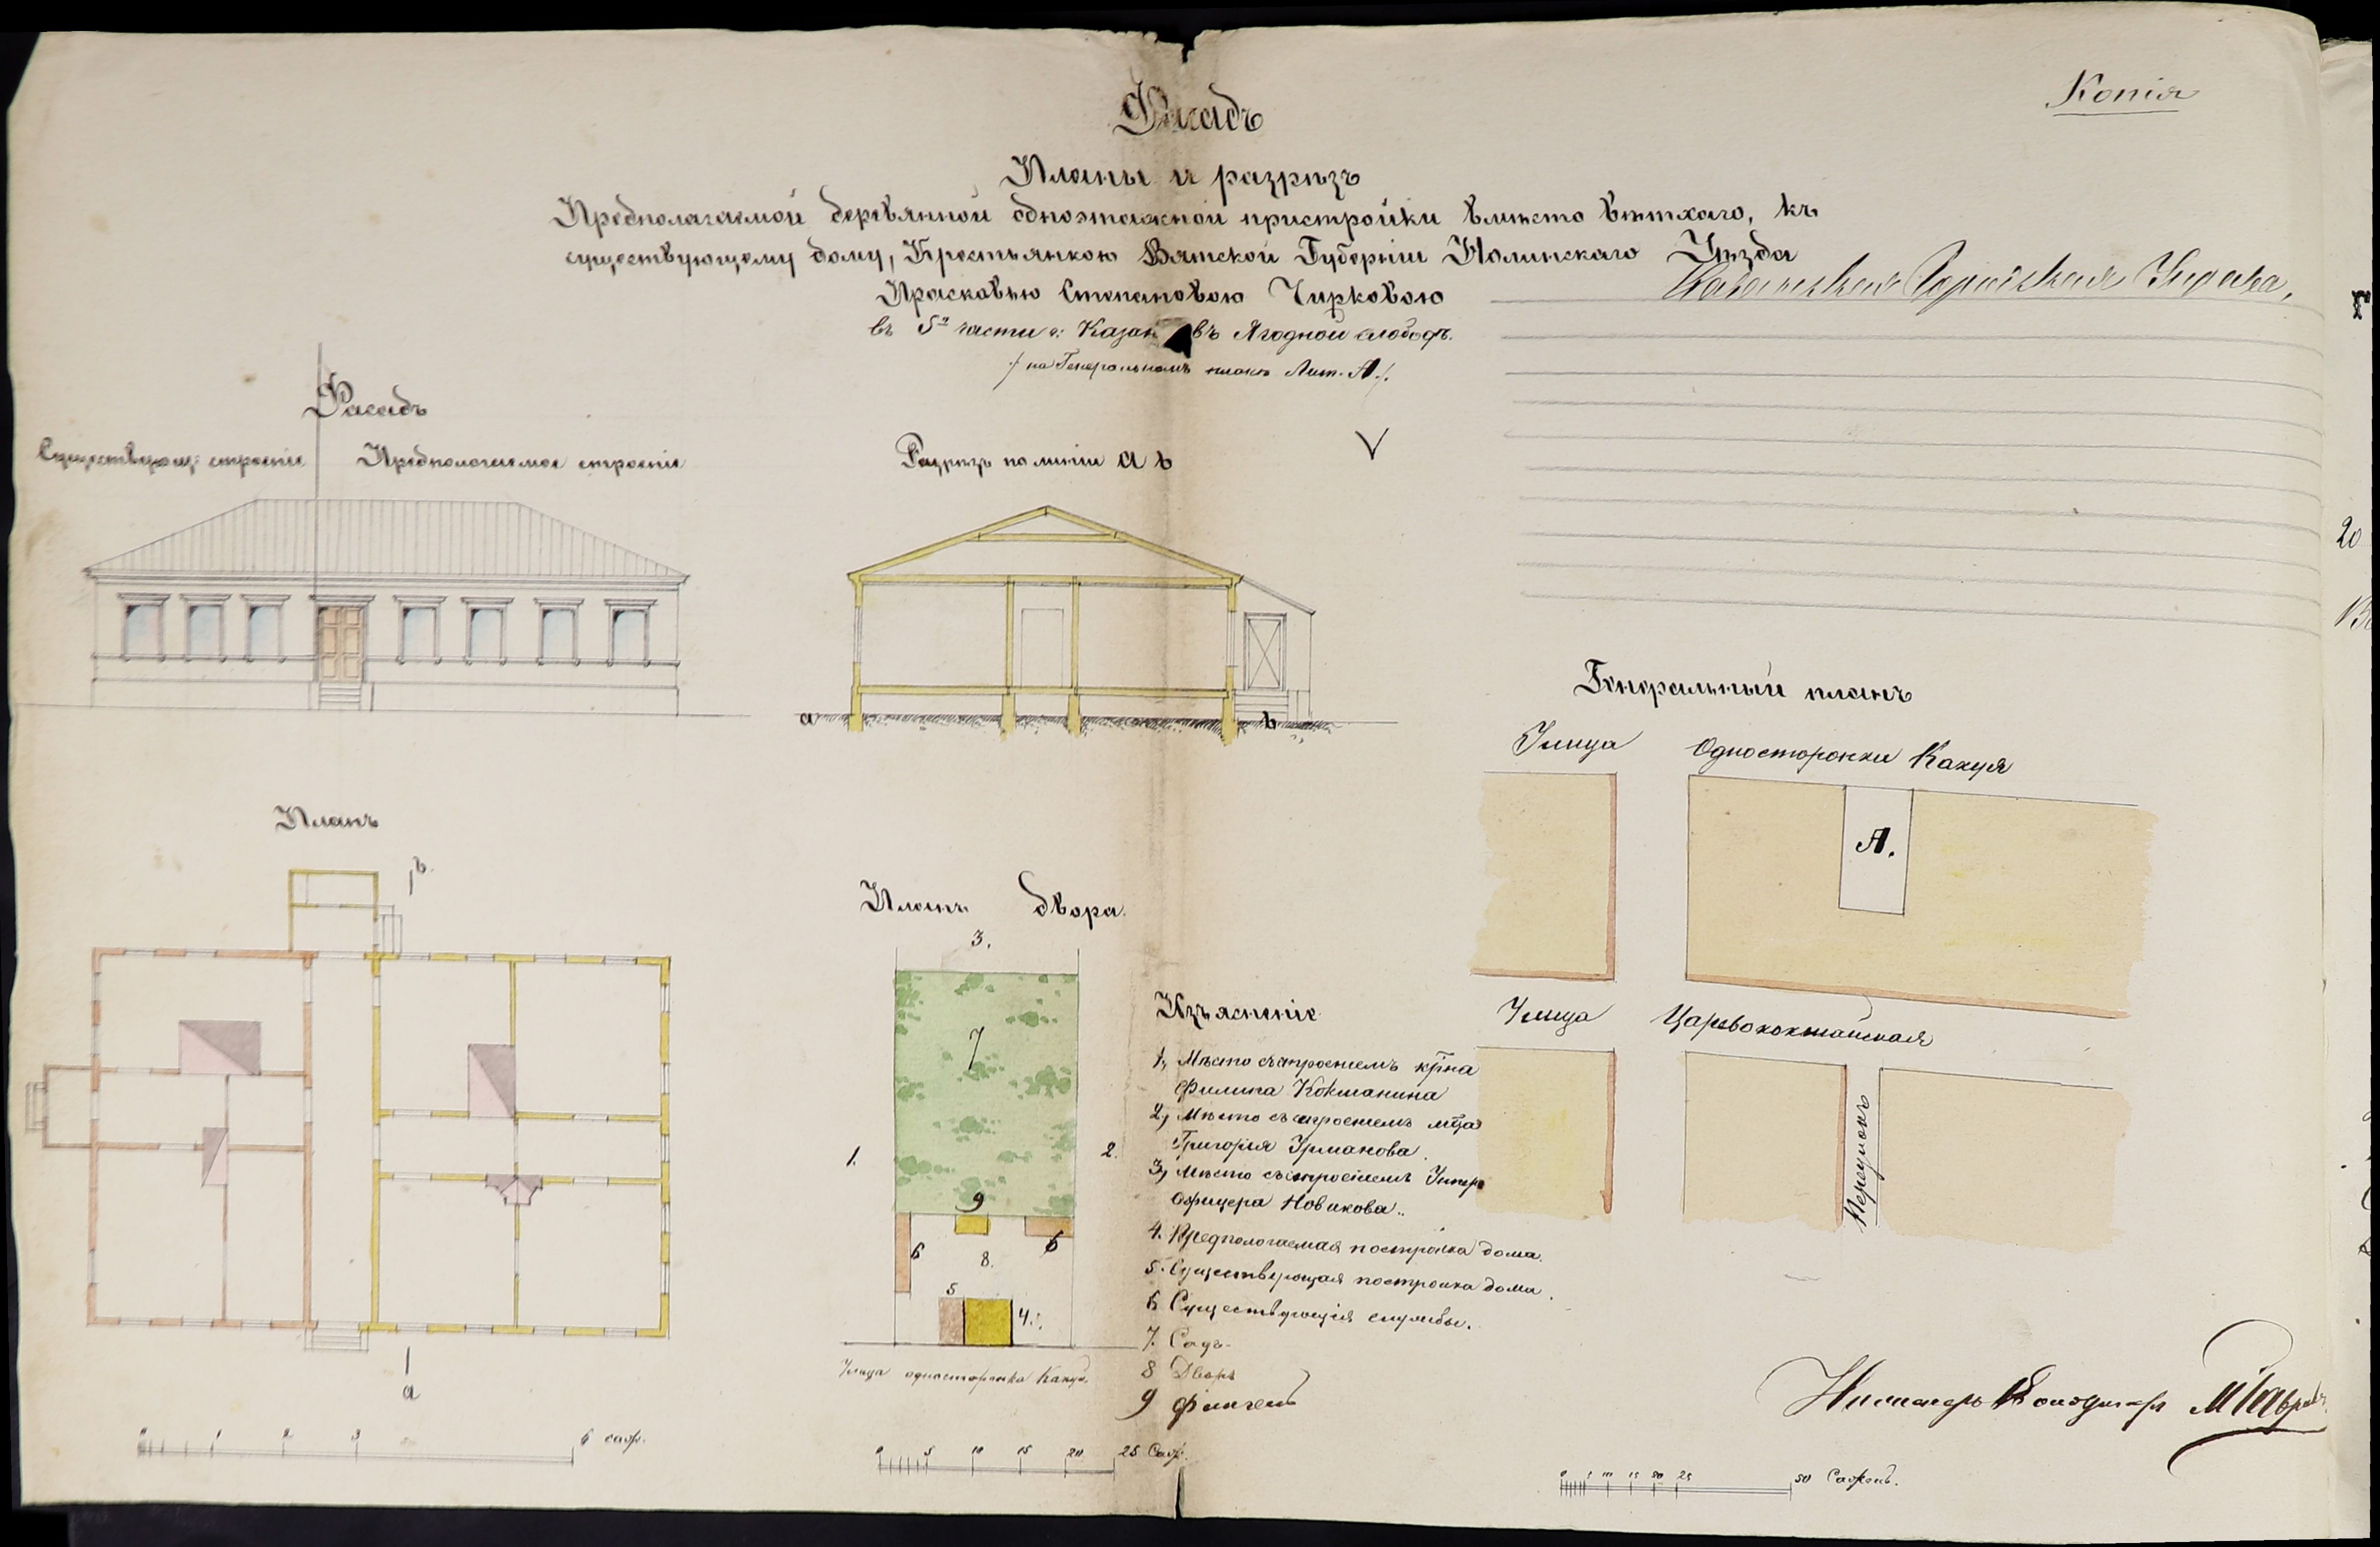 Копія
Фасадъ
Планы и разрѣзъ
Предполагаемой деревянной одноэтажной пристройки вмѣсто ветхаго, къ
существующему дому, Крестьянкою Вятской Губерніи Нолинскаго Уѣзда
Прасковьею Степановою Чирковою
въ 5й части г: Казан въ Ягодной слободѣ.
/ на Генеральномъ планѣ Лит. А /.
Казанская Городская Управа,
Фасадъ
Существующ: строеніе
Предполагаемое строеніе
Разрѣзъ по линіи а в
а
в
Генеральный планъ
Улица Односторонки Какуя
А.
Улица Царевококшайская
Переулокъ
Планъ
в.
а
Планъ двора.
3.
7
1.
2.
9
6
6
8.
5
4.
Улица односторонка Какуя.
Изъясненіе
1, Мѣсто съ строеніемъ кр-на
Филипа Кокшанина
2, Мѣсто съ строеніемъ мѣщ.
Григорія Урманова.
3, Мѣсто съ строеніемъ Унтеръ
Офицера Новикова..
4. Предпологаемая постройка дома.
5. Существующая постройка дома.
6 Существующія службы.
7. Садъ.
8 Дворъ
9 Флигель
0 1 2 3 6 саж.
0 5 10 15 20 25 Саж.
0 5 10 15 20 25 50 Сажень.
20